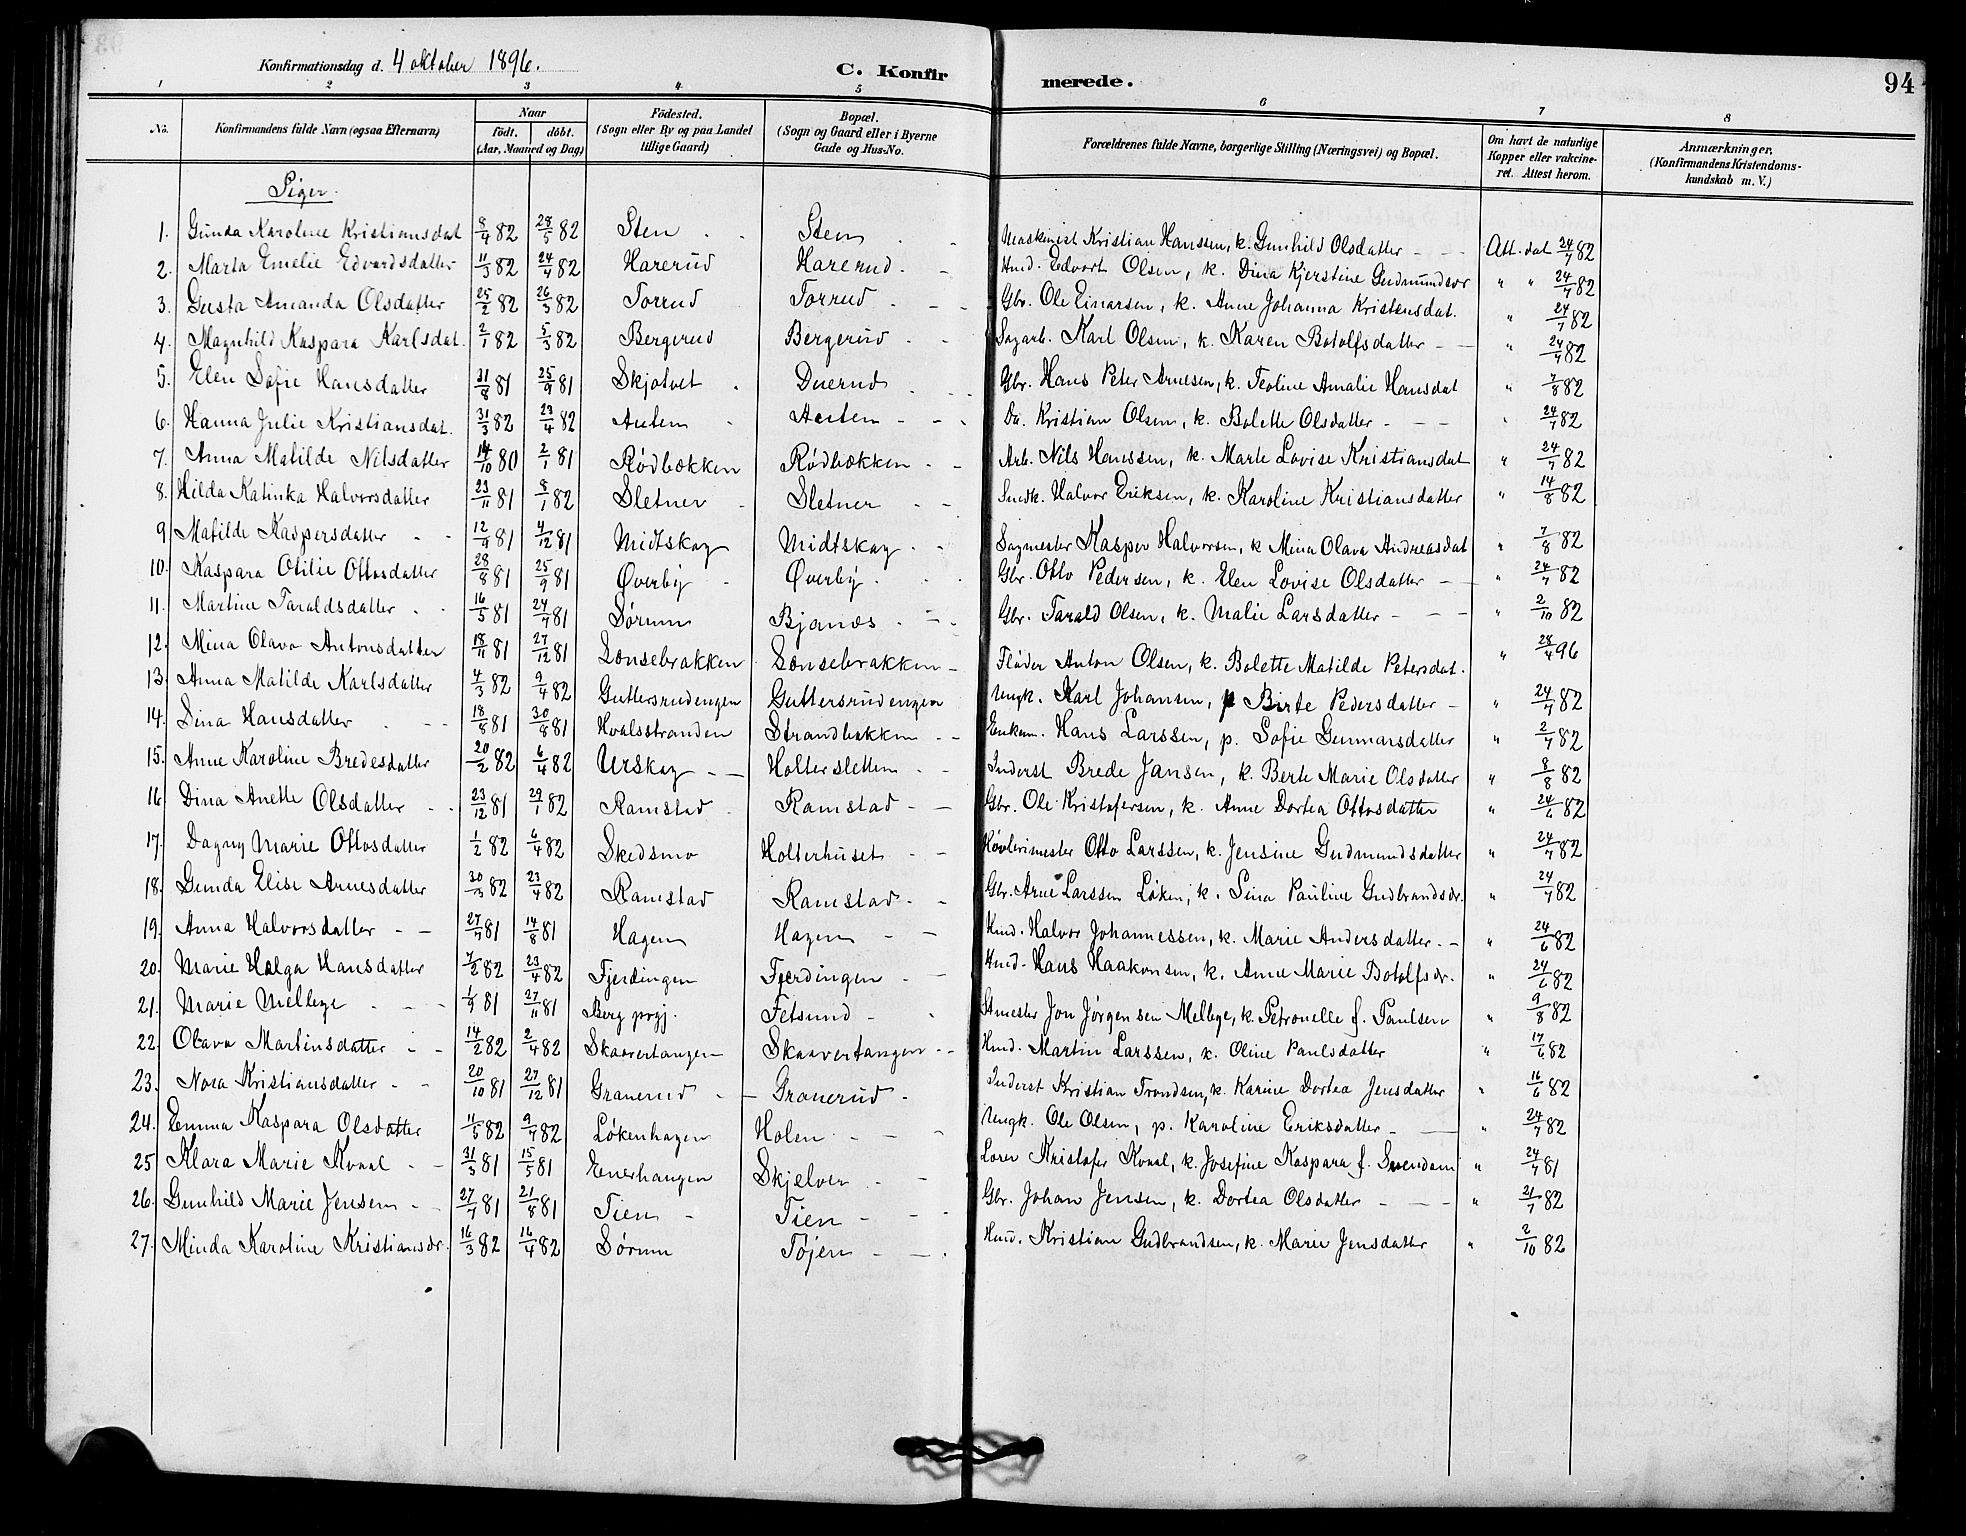 Konfirmationsdag d. 4 oktober 1896.
C. Konfirmerede.
94
1 2 3 4 5 6 7 8
No. Konfirmandens fulde Navn (ogsaa Efternavn) Naar født. døbt. (Aar, Maaned og Dag) Födested. (Sogn eller By og paa Landet tillige Gaard) Bopæl. (Sogn og Gaard eller i Byerne Gade og Hus-No. Forældrenes fulde Navne, borgerlige Stilling (Næringsvei) og Bopæl. Om havt de naturlige Kopper eller vakcineret. Attest herom. Anmærkninger, (Konfirmandens Kristendomskundskab m. V.)
Piger.
1. Gunda Karoline Kristiansdat 8/4 82 28/5 82 Sten Sten Maskinist Kristian Hanssen, k. Gunhild Olsdatter Att. dat 24/7 82
2. Marta Emelie Edvardsdatter 11/3 82 24/4 82 Harerud Harerud Hmd. Edvart Olsen, k. Dina Kjerstine Gudmundsdr " " 24/7 82
3. Gusta Amanda Olsdatter 25/2 82 26/3 82 Torrud Torrud Gbr. Ole Einarsen, k. Anne Johanna Kristensdat. " 24/7 82
4. Magnhild Kaspara Karlsdat. 2/1 82 5/3 82 Bergerud Bergerud Sagarb. Karl Olsen, k. Karen Botolfsdatter " 24/7 82
5. Elen Sofie Hansdatter 31/8 81 25/9 81 Skjatvet Duerud Gbr. Hans Peter Arnesen, k. Teoline Amalie Hansdat " 7/8 82
6. Hanna Julie Kristiansdat. 31/3 82 23/4 82 Asten Do. Kristian Olsen, k. Bolette Olsdatter " 24/7 82
7. Anna Matilde Nilsdatter 14/10 80 2/1 81 Rødbækken Rødbækken Arb. Nils Hanssen, k. Marte Lovise Kristiansdat " 24/7 82
8. Hilda Katinka Halvorsdatter 23/11 81 8/1 82 Sletner Sletner Smedk. Halvor Eriksen, k. Karoline Kristiansdatter " 14/8 82
9 Matilde Kaspersdatter 12/9 81 4/12 81 Midtskog Midtskog Sagmester Kasper Halvorsen, k Mina Olava Andreasdat " 7/8 82
10. Kaspara Otilie Ottosdatter 28/8 81 25/9 81 Øverby Øverby Gbr. Otto Pedersen, k. Elen Lovise Olsdatter " 24/7 82
11. Martine Taraldsdatter 16/5 81 24/7 81 Sørum Bjanæs Gbr. Tarald Olsen, k. Malie Larsdatter " 2/10 82
12. Mina Olava Antonsdatter 18/11 81 27/12 81 Lænsebrakken Lænsebrakken Fløder Anton Olsen, k. Bolette Matilde Petersdat. " 28/4 96
13. Anna Matilde Karlsdatter 4/3 82 9/4 82 Guttersrudengen Guttersrudengen Ungk. Karl Johansen, p Birte Pedersdatter " 24/7 82
14. Dina Hansdatter 18/8 81 30/8 81 Hvalsstranden Strandbakken Enkem. Hans Larssen, p. Sofie Gunnarsdatter " 2/7 82
15. Anne Karoline Bredesdatter 20/2 82 6/4 82 Urskog Holtersletten Inderst Brede Jansen, k. Berte Marie Olsdatter " 8/8 82
16 Dina Anette Olsdatter 23/12 81 29/1 82 Ramstad Ramstad Gbr. Ole Kristofersen, k. Anne Dortea Ottosdatter " 24/6 82
17. Dagny Marie Ottosdatter 1/2 82 6/4 82 Skedsmo Holterhuset Høvlerimester Otto Larssen, k. Jensine Gudmundsdatter " 24/7 82
18. Gunda Elise Arnesdatter 30/3 82 23/4 82 Ramstad Ramstad Gbr. Arne Larssen Løken, k. Lina Pauline Gudbrandsdr. " 24/7 82
19. Anna Halvorsdatter 27/7 81 14/8 81 Hagen Hagen Hmd. Halvor Johannessen, k. Marie Andersdatter " 24/6 82
20. Marie Helga Hansdatter 7/2 82 23/4 82 Fjerdingen Fjerdingen Hmd. Hans Haakonsen, k. Anne Marie Botolfsdr. " 24/6 82
21. Marie Mellege 1/9 81 27/11 81 Berg prgj. Fetsund Stmester Jon Jørgensen Mellege, k. Petronelle f. Paulsen " 9/8 82
22. Olava Martinsdatter 14/2 82 2/4 82 Skaavertangen Skaavertangen Hmd. Martin Larssen, k. Oline Paulsdatter " 17/6 82
23. Nora Kristiansdatter 20/10 81 27/12 81 Granerud Granerud Inderst Kristian Trondsen, k. Karine Dortea Jensdatter " 16/6 82
24. Emma Kaspara Olsdatter 11/5 82 9/7 82 Løkenhagen Holen Ungk. Ole Olsen, p. Karoline Eriksdatter " 24/7 82
25 Klara Marie Kvaal 31/3 81 15/5 81 Enerhaugen Skjelver Kristofer Kvaal, k. Josefine Kaspara f. Svendsen " 24/7 81
26. Gunhild Marie Jensen 27/7 81 21/8 81 Tien Tien Gbr. Johan Jensen, k. Dortea Olsdatter " 21/7 82
27. Minda Karoline Kristiansdr. 16/3 82 16/4 82 Sørum Tøjen Hmd. Kristian Gudbrandsen, k. Marie Jensdatter " 2/10 82